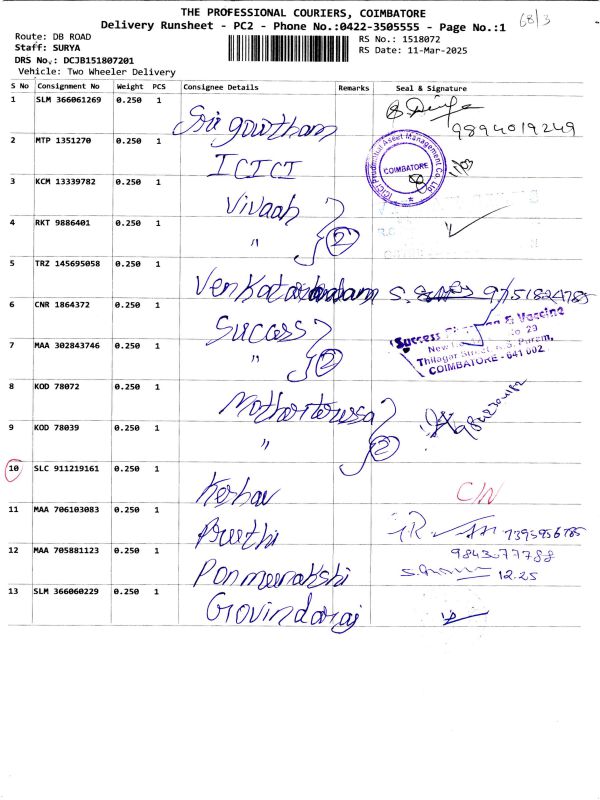 THE PROFESSIONAL COURIERS, COIMBATORE
68/3
Delivery Runsheet - PC2 - Phone No.:0422-3505555 - Page No.:1
Route: DB ROAD
RS No.: 1518072
Staff: SURYA
RS Date: 11-Mar-2025
DRS No.: DCJB151807201
Vehicle: Two Wheeler Delivery
S No Consignment No Weight PCS Consignee Details Remarks Seal & Signature
1 SLM 366061269 0.250 1 Sri gowtham 9894019249
2 MTP 1351270 0.250 1 ICICI ICICI Prudential Asset Management Co. Ltd. COIMBATORE
3 KCM 13339782 0.250 1 Vivaah
4 RKT 9886401 0.250 1 " 2
5 TRZ 145695058 0.250 1 S. 9751824785
6 CNR 1864372 0.250 1 Success Success & Vaccine
7 MAA 302843746 0.250 1 " 2 Thilagar Street, Puram, COIMBATORE - 641 002
8 KOD 78072 0.250 1
9 KOD 78039 0.250 1 " 2
10 SLC 911219161 0.250 1 Keshav C/N
11 MAA 706103083 0.250 1 Preethi
12 MAA 705881123 0.250 1 Ponmeenakshi 9843077788
12.25
13 SLM 366060229 0.250 1 Govindaraj